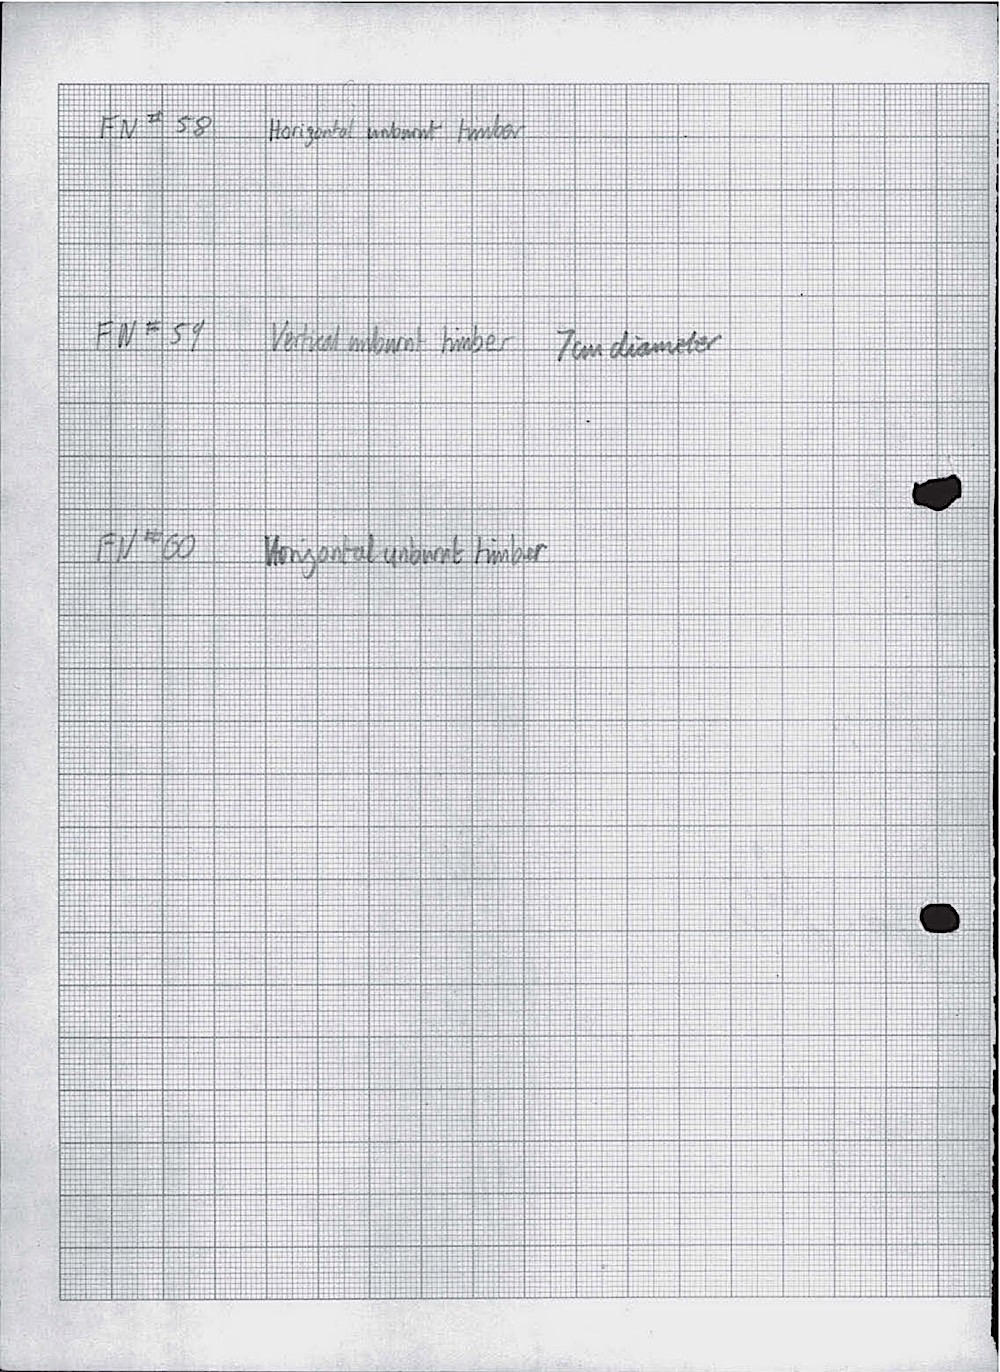 FN # 58 Horizontal unburnt timber
FN # 59 Vertical unburnt timber 7cm diameter
FN # 60 Horizontal unburnt timber